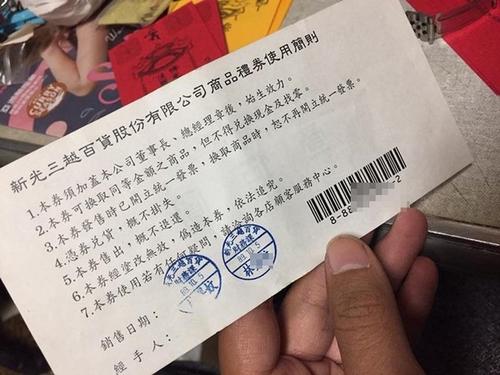 新光三越百貨股份有限公司商品禮券使用簡則
1.本券須加蓋本公司董事長、總經理章後，始生效力。
2.本券可換取同等金額之商品，但不得兌換現金及找零。
3.本券發售時已開立統一發票，換取商品時，恕不再開立統一發票。
4.憑券兌貨，概不掛失。
5.本券售出，概不退還。
6.本券經塗改無效，偽造本券，依法追究。
7.本券使用若有任何疑問，請洽詢各店顧客服務中心。
銷售日期：
經手人：
新光三越百貨
財務課
10.5
新光三越百貨
財務課
10.5
林
8-8
-2